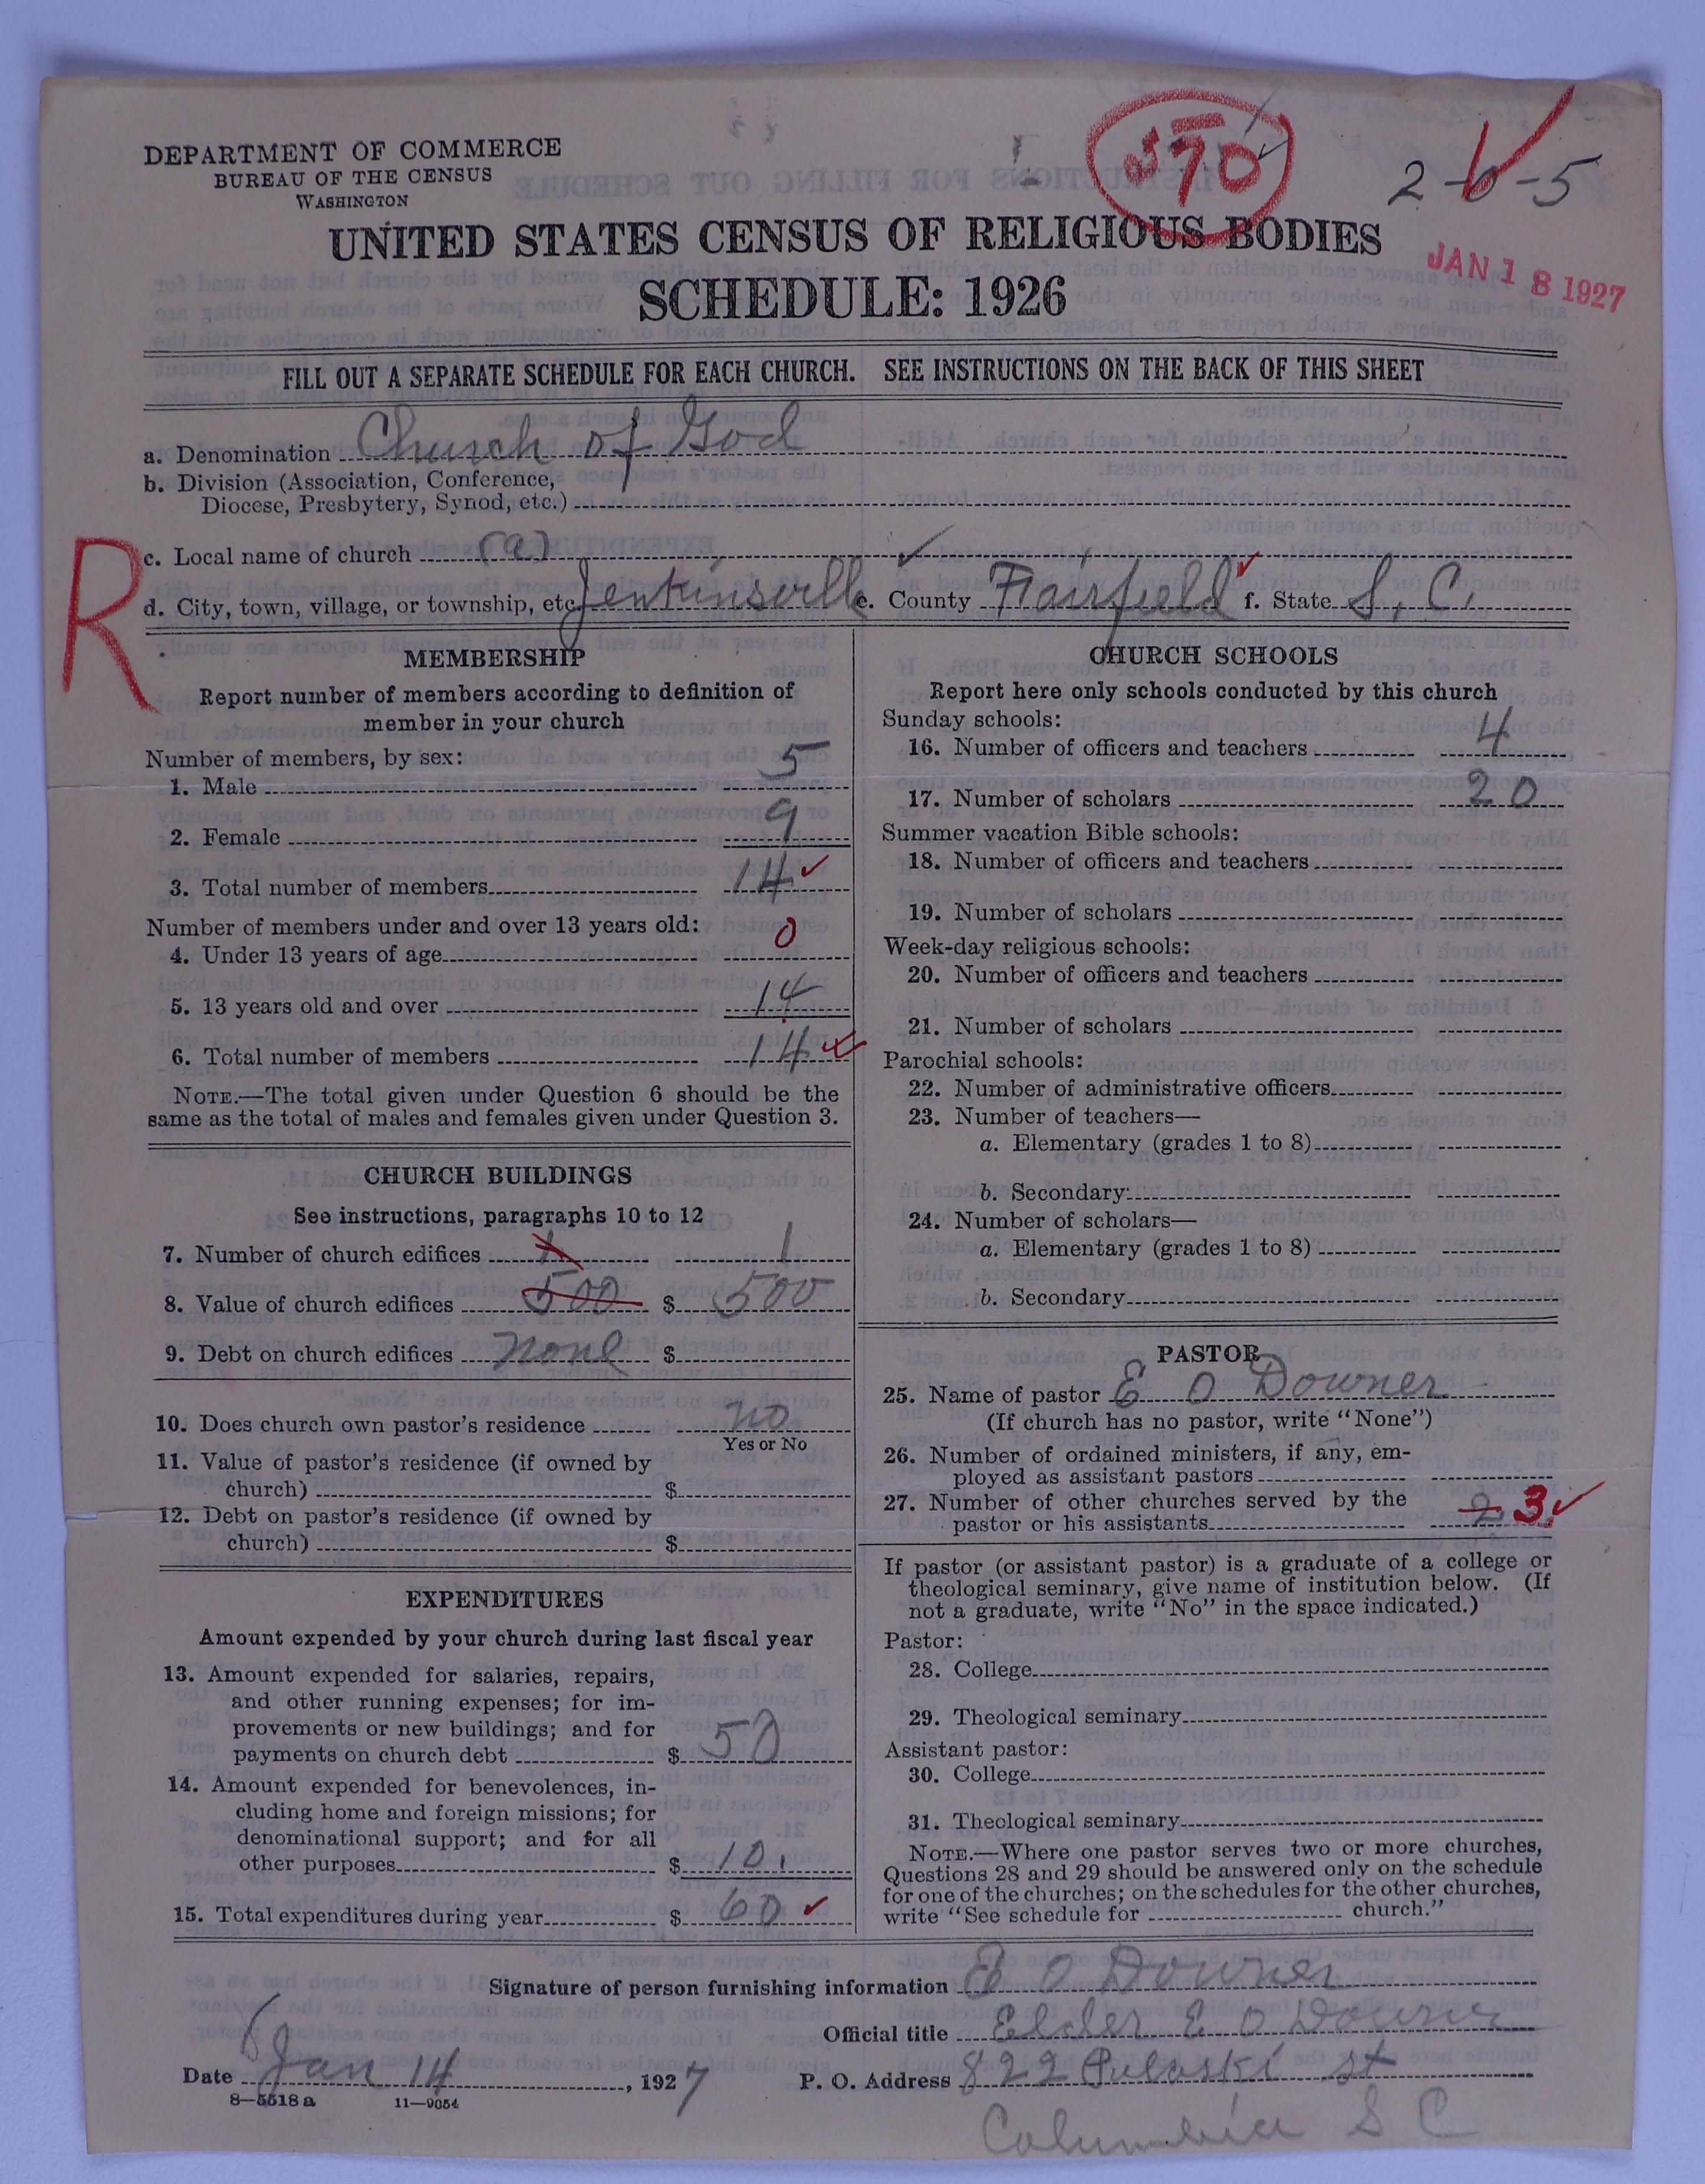 DEPARTMENT OF COMMERCE
BUREAU OF THE CENSUS
WASHINGTON
570
2-0-5
UNITED STATES CENSUS OF RELIGIOUS BODIES
JAN 18 1927
SCHEDULE: 1926
FILL OUT A SEPARATE SCHEDULE FOR EACH CHURCH. SEE INSTRUCTIONS ON THE BACK OF THIS SHEET
a. Denomination Church of God
b. Division (Association, Conference,
Diocese, Presbytery, Synod, etc.)
R
c. Local name of church (a)
d. City, town, village, or township, etc. Jenkinsville e. County Fairfield f. State S. C.
MEMBERSHIP
Report number of members according to definition of
member in your church
Number of members, by sex:
1. Male 5
2. Female 9
3. Total number of members 14
Number of members under and over 13 years old:
4. Under 13 years of age 0
5. 13 years old and over 14
6. Total number of members 14
NOTE.—The total given under Question 6 should be the
same as the total of males and females given under Question 3.
CHURCH BUILDINGS
See instructions, paragraphs 10 to 12
7. Number of church edifices 1 1
8. Value of church edifices 500 $ 500
9. Debt on church edifices none $
10. Does church own pastor's residence no
Yes or No
11. Value of pastor's residence (if owned by
church) $
12. Debt on pastor's residence (if owned by
church) $
EXPENDITURES
Amount expended by your church during last fiscal year
13. Amount expended for salaries, repairs,
and other running expenses; for im-
provements or new buildings; and for
payments on church debt $ 50
14. Amount expended for benevolences, in-
cluding home and foreign missions; for
denominational support; and for all
other purposes $ 10.
15. Total expenditures during year $ 60
CHURCH SCHOOLS
Report here only schools conducted by this church
Sunday schools:
16. Number of officers and teachers 4
17. Number of scholars 20
Summer vacation Bible schools:
18. Number of officers and teachers
19. Number of scholars
Week-day religious schools:
20. Number of officers and teachers
21. Number of scholars
Parochial schools:
22. Number of administrative officers
23. Number of teachers—
a. Elementary (grades 1 to 8)
b. Secondary
24. Number of scholars—
a. Elementary (grades 1 to 8)
b. Secondary
PASTOR
25. Name of pastor E O Downer
(If church has no pastor, write "None")
26. Number of ordained ministers, if any, em-
ployed as assistant pastors
27. Number of other churches served by the
pastor or his assistants 2 3
If pastor (or assistant pastor) is a graduate of a college or
theological seminary, give name of institution below. (If
not a graduate, write "No" in the space indicated.)
Pastor:
28. College
29. Theological seminary
Assistant pastor:
30. College
31. Theological seminary
NOTE.—Where one pastor serves two or more churches,
Questions 28 and 29 should be answered only on the schedule
for one of the churches; on the schedules for the other churches,
write "See schedule for church."
Signature of person furnishing information E O Downer
Official title Elder E O Downer
Date Jan 14, 1927 P. O. Address 822 Pulaski st
8—5518 a 11—9054
Columbia S C